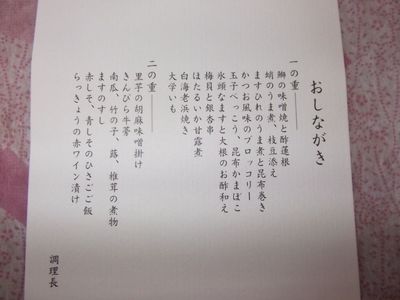 おしながき
一の重
鰤の味噌焼と酢蓮根
蛸のうま煮、枝豆添え
ますひれのうま煮と昆布巻き
かつお風味のブロッコリー
玉子べっこう、昆布かまぼこ
氷頭なますと大根のお酢和え
梅貝と銀杏串
ほたるいか甘露煮
白海老浜焼き
大学いも
二の重
里芋の胡麻味噌掛け
きんぴら牛蒡
南瓜、竹の子、蕗、椎茸の煮物
ますのすし
赤しそ、青しそのひさごご飯
らっきょうの赤ワイン漬け
調理長